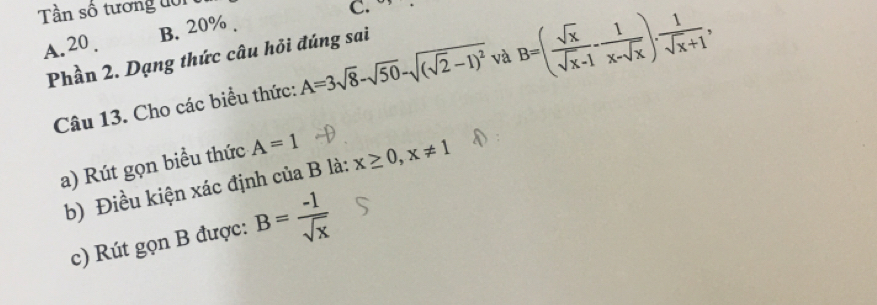 Tần số tương
C.
A. 20 . B. 20% .
Phần 2. Dạng thức câu hỏi đúng sai
Câu 13. Cho các biểu thức: A=3√8-√50-√((√2-1)²) và B=(√x/(√x-1) - 1/(x-√x)) . 1/(√x+1),
a) Rút gọn biểu thức A = 1 Đ
b) Điều kiện xác định của B là: x ≥ 0, x ≠ 1 Đ
c) Rút gọn B được: B = -1/√x S